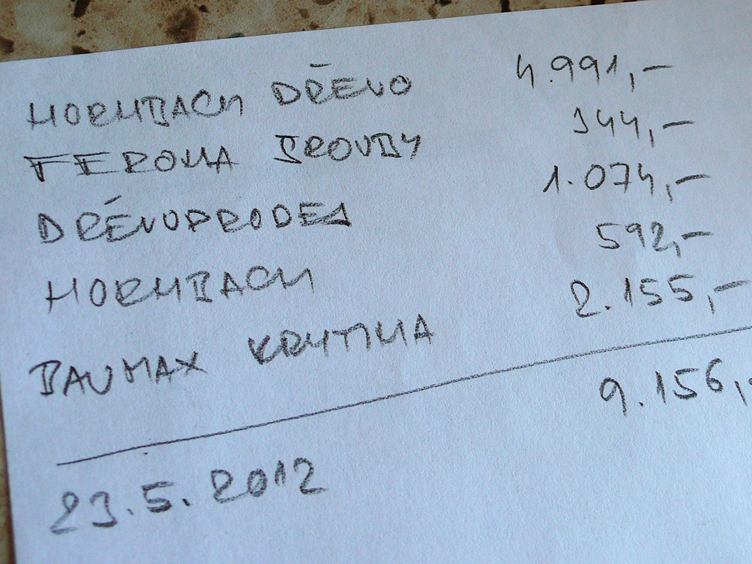 HORNBACH DŘEVO 4.991,-
FERONA ŠROUBY 344,-
DŘEVOPRODEJ 1.074,-
HORNBACH 592,-
BAUMAX KRYTINA 2.155,-
9.156,-
23.5.2012